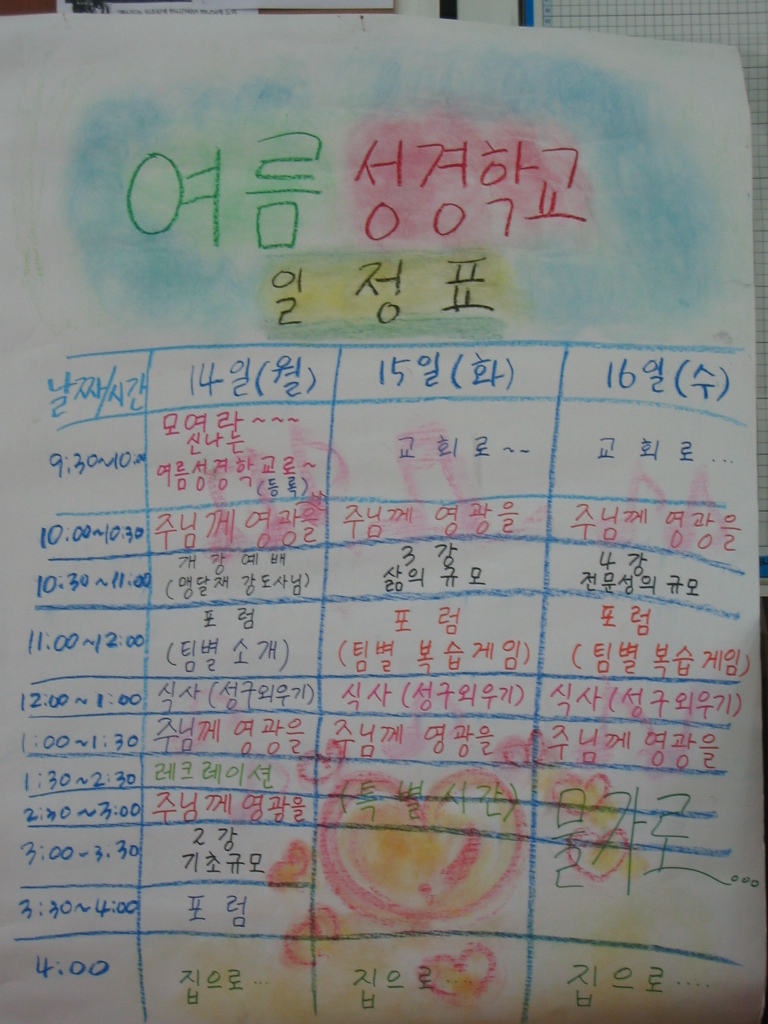 여름 성경학교
일 정 표
날짜/시간 14일(월) 15일(화) 16일(수)
9:30~10:00 모여라~~~ 교 회 로 ~~ 교 회 로 ...
신나는
여름성경학교로~
(등록)
10:00~10:30 주님께 영광을 주님께 영광을 주님께 영광을
10:30~11:00 개 강 예 배 3 강 4 강
(맹달재 강도사님) 삶의 규모 전문성의 규모
11:00~12:00 포 럼 포 럼 포 럼
(팀별 소개) (팀별 복습게임) (팀별 복습게임)
12:00~1:00 식사(성구외우기) 식사(성구외우기) 식사(성구외우기)
1:00~1:30 주님께 영광을 주님께 영광을 주님께 영광을
1:30~2:30 레크레이션 (특별시간) 물가로...
2:30~3:00 주님께 영광을
3:00-3.30 2 강
기초규모
3:30~4:00 포 럼
4:00 집으로... 집으로.... 집으로....